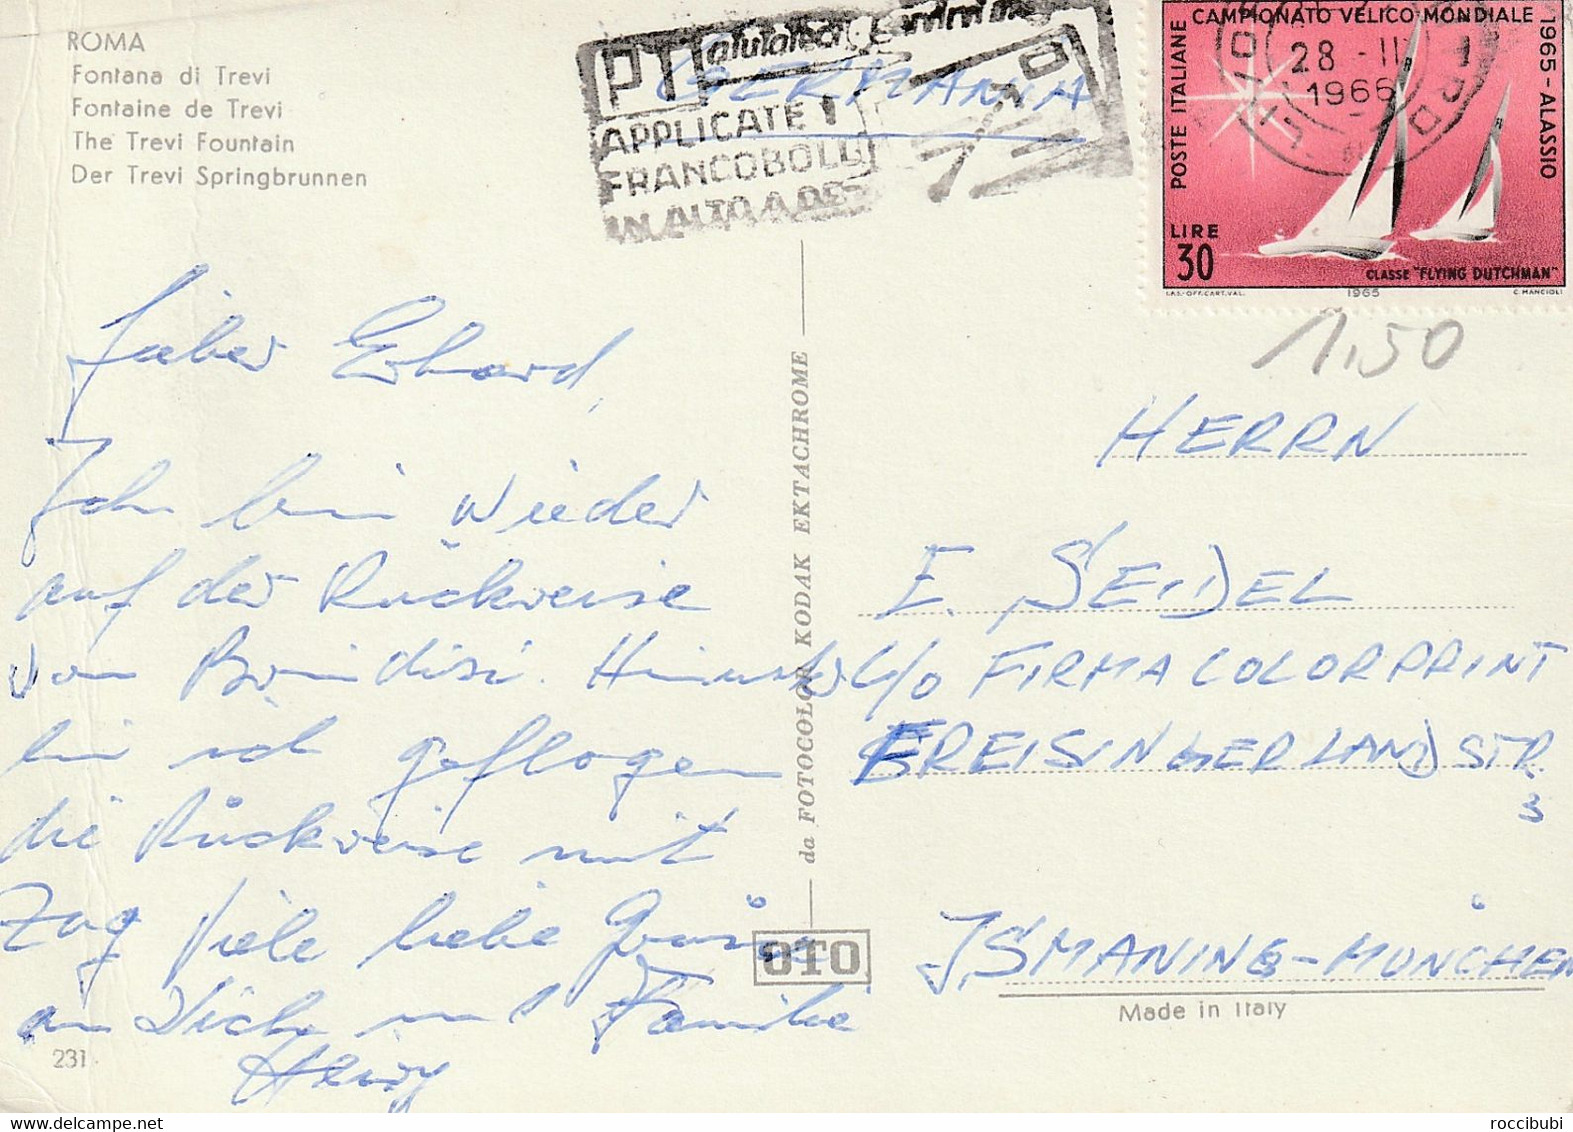 ROMA
Fontana di Trevi
Fontaine de Trevi
The Trevi Fountain
Der Trevi Springbrunnen
PT
APPLICATE I
FRANCOBOLLI
IN ALTO A DES
GERMANIA
POSTE ITALIANE
CAMPIONATO VELICO MONDIALE
1965 - ALASSIO
28 - II
1966
LIRE
30
CLASSE "FLYING DUTCHMAN"
I.P.S.-OFF.CART.VAL.
1965
C. MANCIOLI
1,50
Lieber Erhard,
Ich bin wieder
auf der Rückreise
von Brindisi. Hinwärts
bin ich geflogen
die Rückreise mit
Zug Viele liebe Grüsse
an Dich und Familie
231
da FOTOCOLOR KODAK EKTACHROME
OTO
HERRN
E. SEIDEL
C/O FIRMA COLORPRINT
FREISINGERLANDSTR
3
ISMANING-MÜNCHEN
Made in Italy
roccibubi